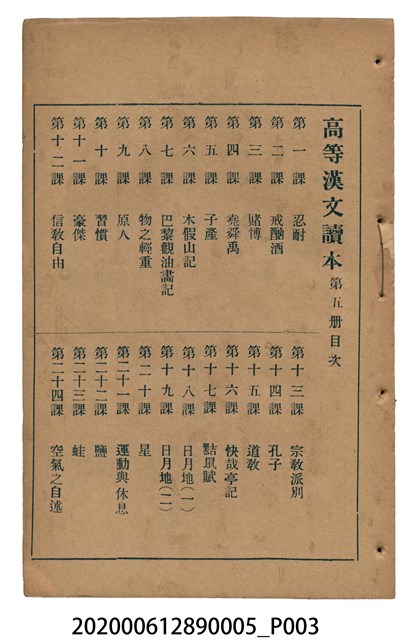 高等漢文讀本 第五册目次
第一課 忍耐
第二課 戒酗酒
第三課 賭博
第四課 堯舜禹
第五課 子產
第六課 木假山記
第七課 巴黎觀油畵記
第八課 物之輕重
第九課 原人
第十課 習慣
第十一課 豪傑
第十二課 信敎自由
第十三課 宗敎派別
第十四課 孔子
第十五課 道敎
第十六課 快哉亭記
第十七課 黠鼠賦
第十八課 日月地(一)
第十九課 日月地(二)
第二十課 星
第二十一課 運動與休息
第二十二課 鹽
第二十三課 蛙
第二十四課 空氣之自述
202000612890005_P003